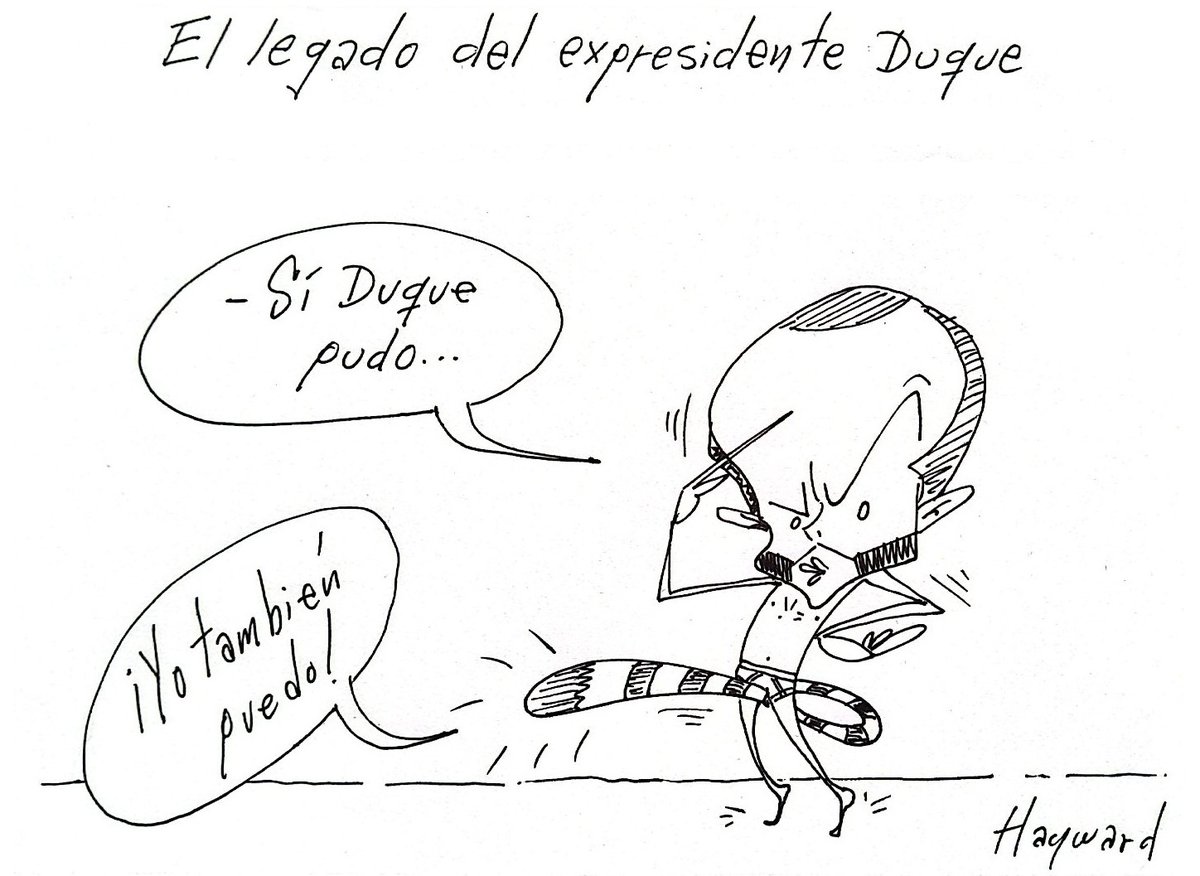 El legado del expresidente Duque
- Sí Duque
pudo...
¡Yo también
puedo!
Hayward